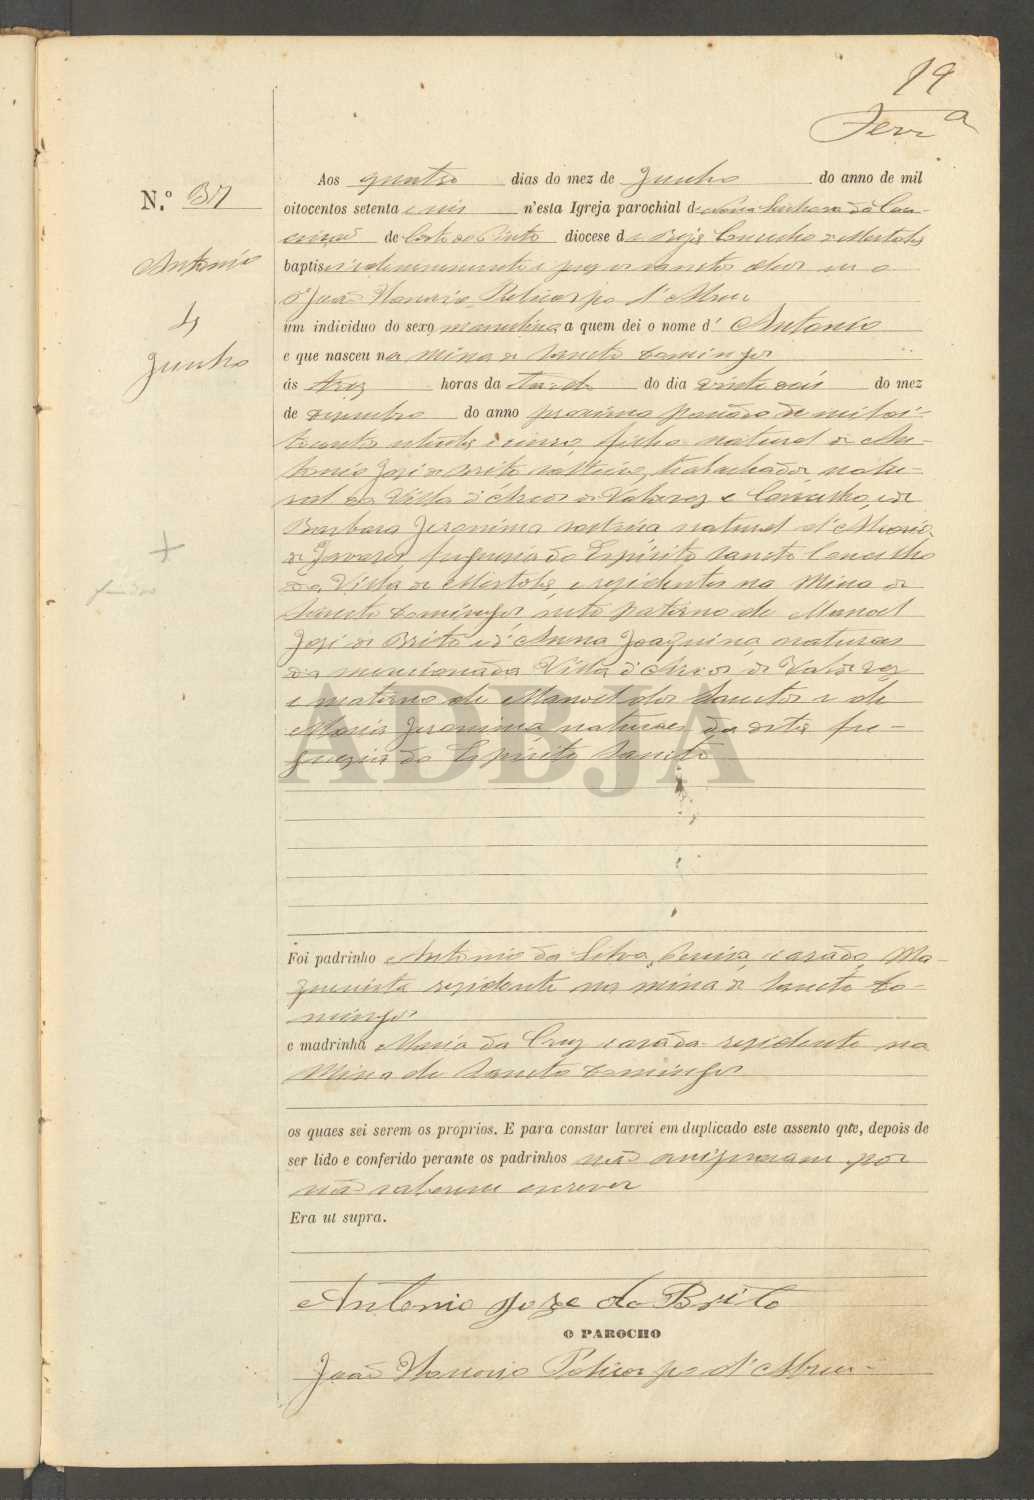 19
Ferr.a
N.º 37
Antonio
4
Junho
Aos quatro dias do mez de Junho do anno de mil
oitocentos setenta e seis n'esta Igreja parochial de Nossa Senhora da Con-
ceição de Corte do Pinto diocese de Beja Concelho de Mertola
baptisei solemnemente e puz os sanctos oleos eu o
P.e João Honorio Policarpo d'Abreu
um individuo do sexo masculino a quem dei o nome d' Antonio
e que nasceu na mina de Sancto Domingos
ás trez horas da tarde do dia vinte seis do mez
de dezembro do anno proximo passado de mil oi-
tocentos setenta e cinco, filho natural de An-
tonio José de Brito solteiro, trabalhador natu-
ral da Villa d'Arcos de Valdevez e Concelho, e de
Barbara Jeronima solteira natural
freguesia do Espirito Sancto Concelho
da Villa de Mertola, e residentes na Mina de
Sancto Domingos, neto paterno de Manoel
José de Brito e d'Anna Joaquina naturaes
da mencionada Villa d'Arcos de Valdevez
e materno de Manoel dos Sanctos e de
Maria Jeronima naturaes da dita fre-
guezia do Espirito Sancto
ADBJA
Foi padrinho Antonio da Silva casado Ma-
quinista residente na mina de Sancto Do-
mingos
e madrinha Maria da Cruz casada residente na
Mina de Sancto Domingos
os quaes sei serem os proprios. E para constar lavrei em duplicado este assento que, depois de
ser lido e conferido perante os padrinhos não assignaram por
não saberem escrever
Era ut supra.
Antonio Joze de Brito
O PAROCHO
João Honorio Policarpo d'Abreu